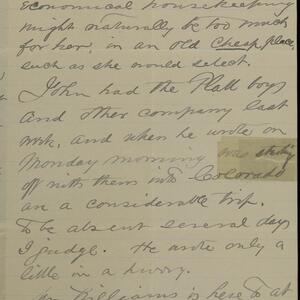 economical housekeeping
might naturally be too much
for her, in an old Cheap place
such as she would select.
John had the Platt boys
and other company last
week, and when he wrote on
Monday morning was starting
off with them into Colorado
on a considerable trip.
To be absent several days
I judge. He wrote only a
little in a hurry.
Williams is here to at